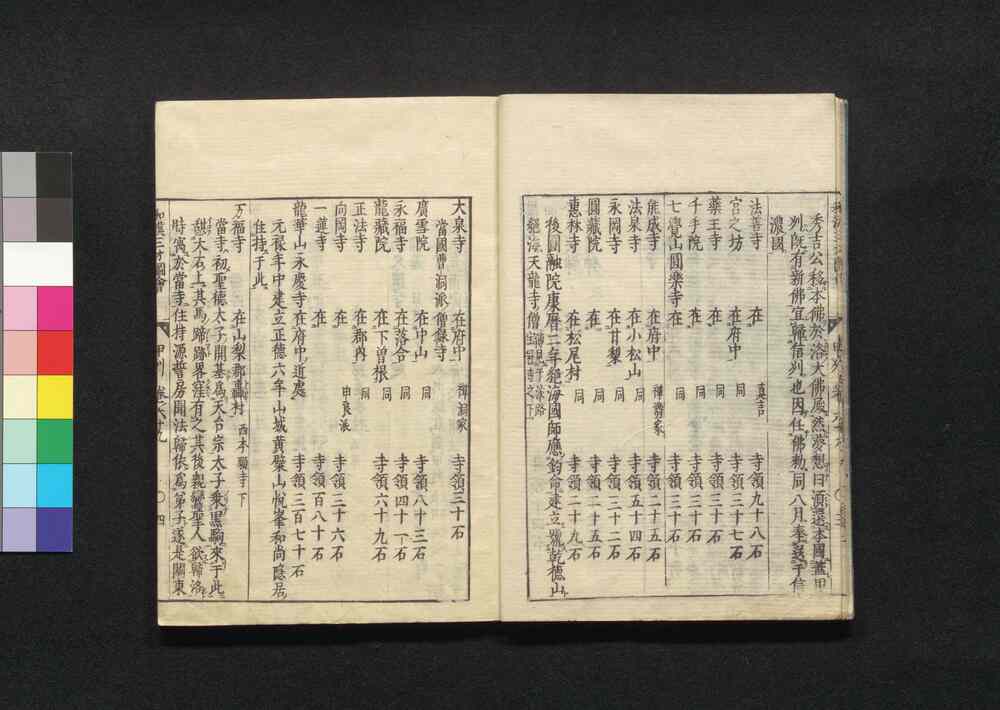 秀吉公移本佛於洛大佛殿然夢想曰須還本國蓋甲
列既有新佛宜歸信列也因任佛勅同八月奉送于信
濃國
法善寺 真言 寺領九十八石
宮之坊 在府中 同 寺領三十七石
藥王寺 在 同 寺領三十石
千手院 在 同 寺領三十石
七覺山圓樂寺 在 同 寺領三十石
能成寺 在府中 禪濟家 寺領二十五石
法泉寺 在小松山 同 寺領五十四石
永岡寺 在百梨 同 寺領三十二石
圓藏院 在 同 寺領二十五石
惠林寺 在松尾村 同 寺領二十九石
後圓融院康暦二年絕海國師應鈞命建立號乾德山
絕海天龍寺僧
大泉寺 在府中 禪洞家 寺領三十石
當國曹洞派僧錄寺
廣雪院 在中山 同 寺領八十三石
永福寺 在落合 同 寺領四十一石
龍藏院 在下曽根 同 寺領六十九石
正法寺 在郡內 同
向岡寺 在 寺領三十六石
一蓮寺 在 寺領百八十石
龍華山永慶寺 在府中近處 寺領三百七十石
元禄年中建立正德六年山城黃檗山悅峯和尚隱居
住持于此
万福寺 在山梨郡 西本願寺下
當寺初聖德太子開基為天台宗太子乘黒駒來于此
大石上其馬蹄跡畧窪有之其後親鸞聖人欲歸洛
時寓於當寺住持源誓房聞法歸依為弟子遂是關東
和漢三才圖會 甲州 卷之六十九 〇四